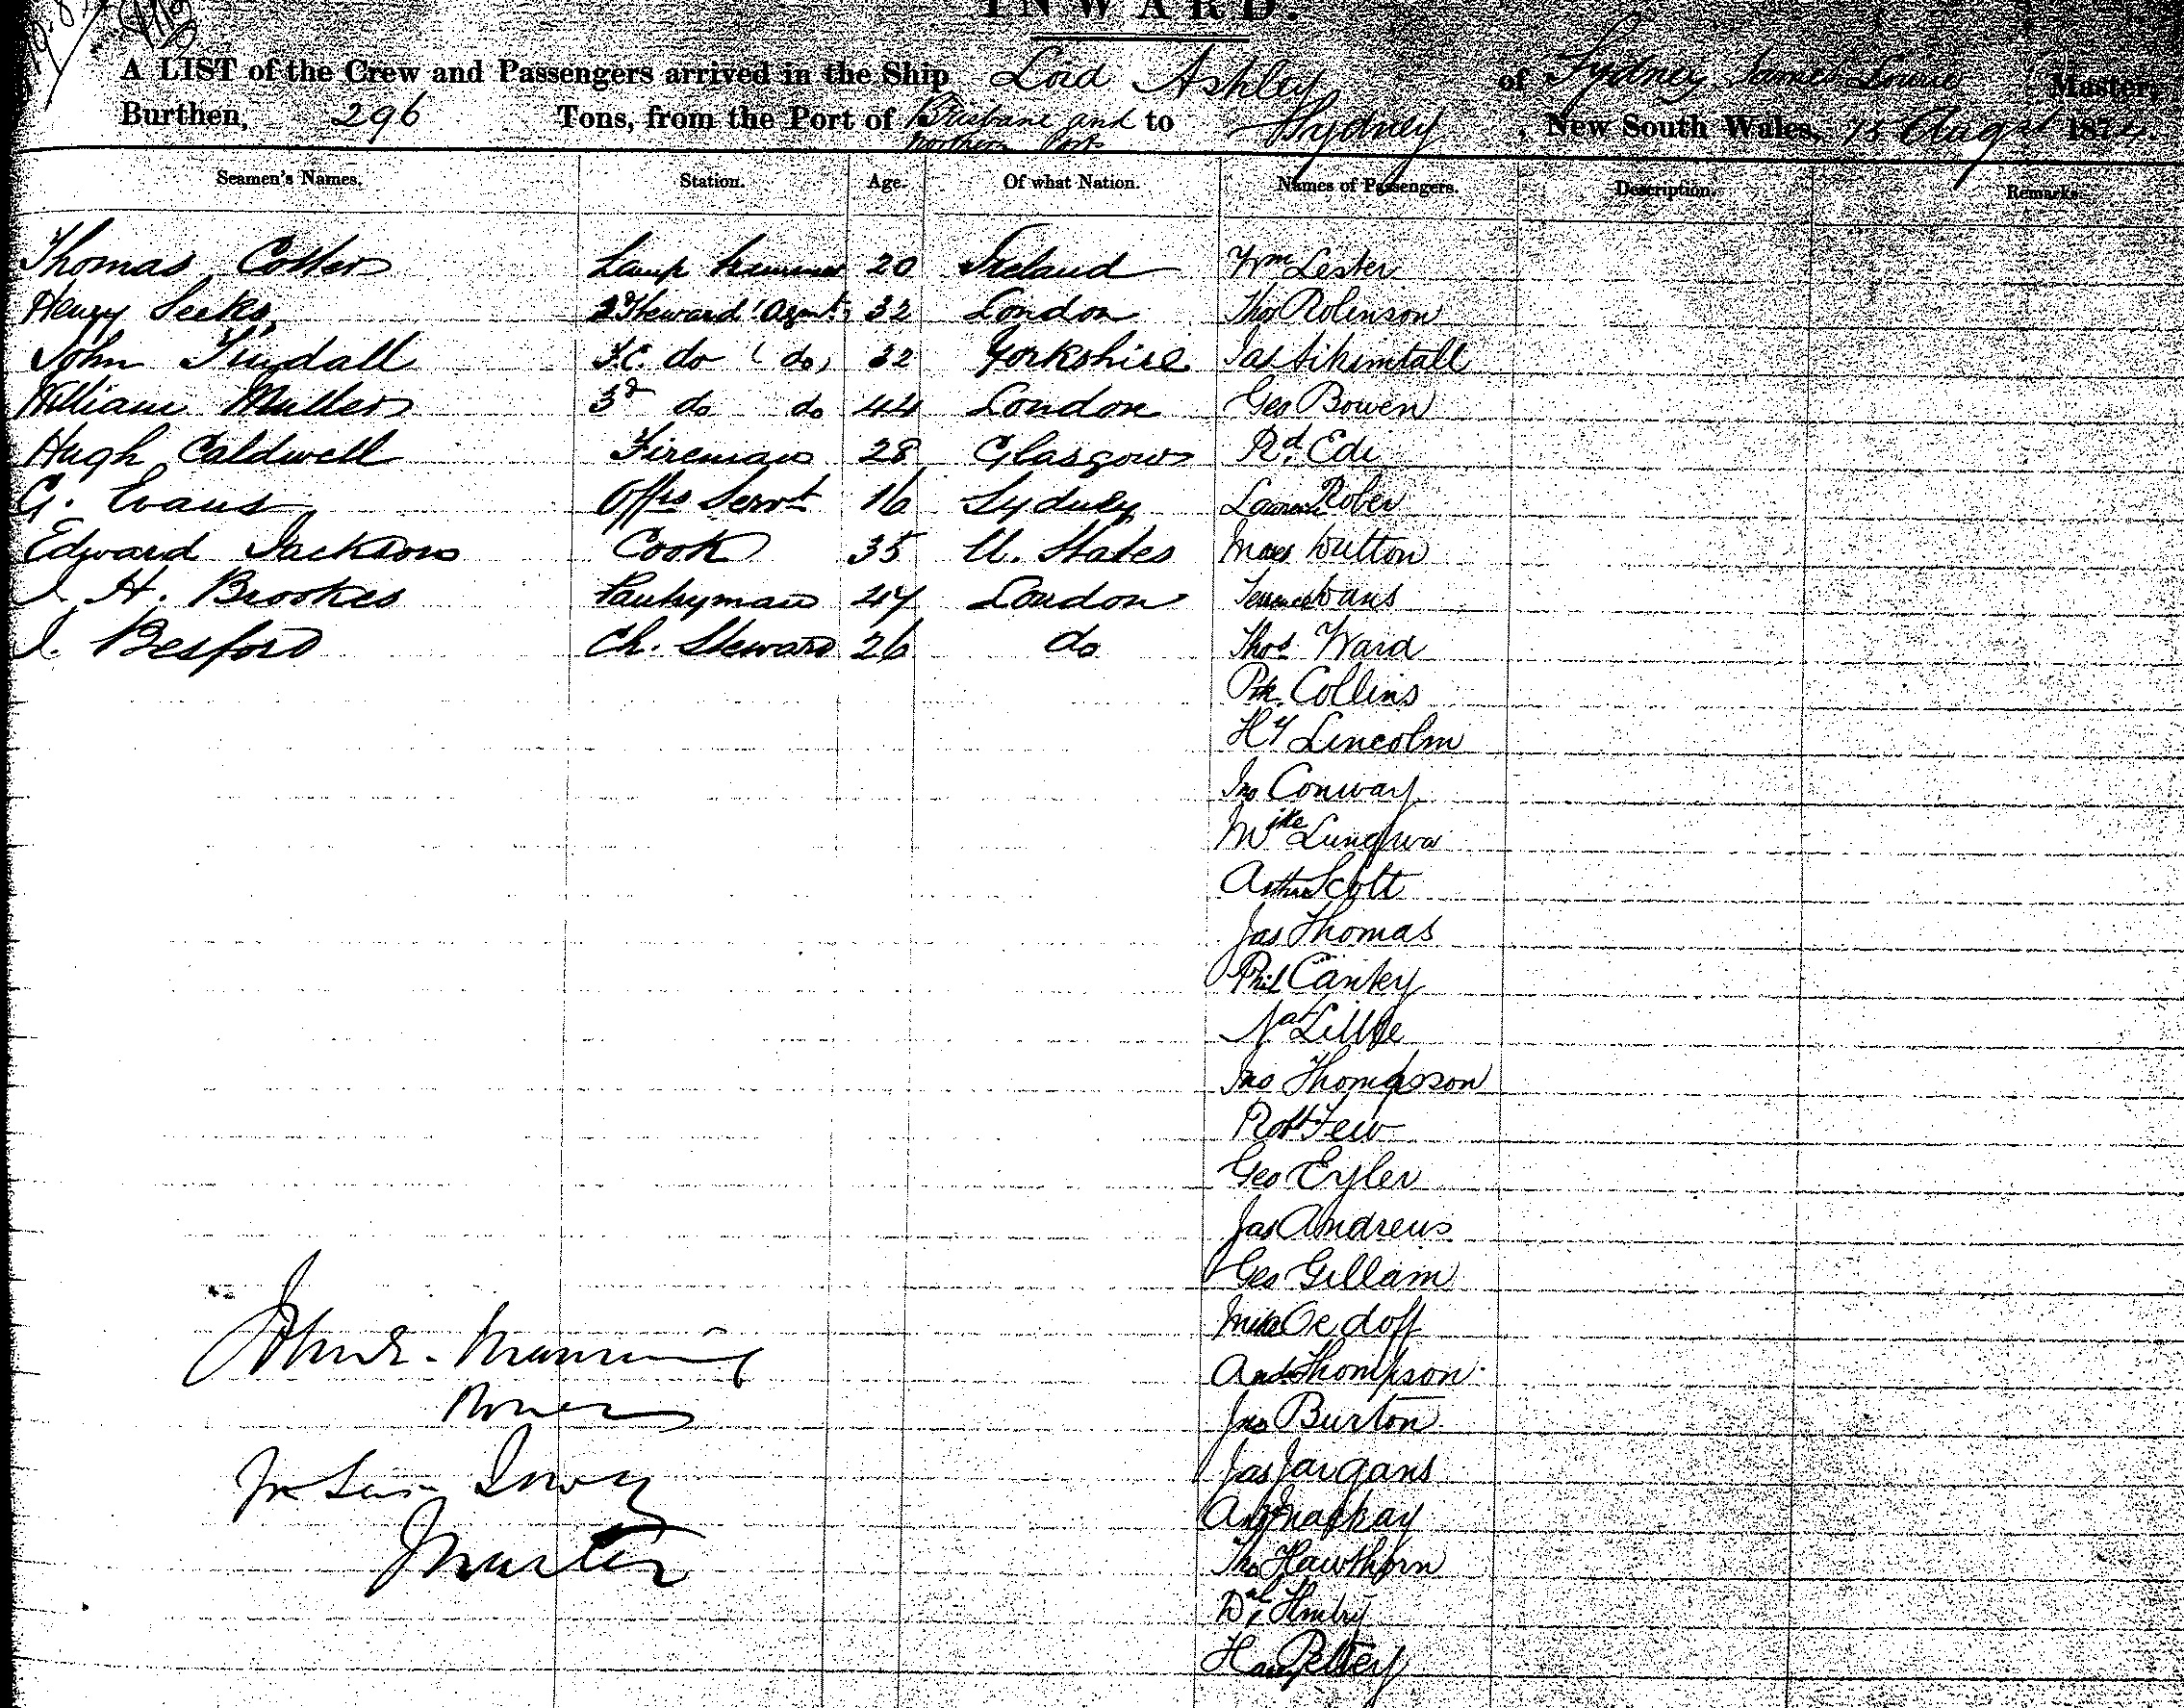 INWARD.
A LIST of the Crew and Passengers arrived in the Ship Lord Ashley of Sydney, James Lowrie Master,
Burthen, 296 Tons, from the Port of Brisbane and Northern Ports to Sydney, New South Wales, 15 August 187
Seamen's Names. Station. Age. Of what Nation. Names of Passengers. Description. Remarks.
Thomas Coster Lamp trimmer 20 Ireland Wm Lester
Henry Seeks 2d Steward (Agent) 32 London Thos Robinson
John Tindall F.C. do (do) 32 Yorkshire Jas
William Muller 3d do do 44 London Geo Bowen
Hugh Caldwell Fireman 28 Glasgow Rd. Ede
G. Evans Offrs Servt 16 Sydney Rober
Edward Jackson Cook 35 U. States Dutton
J. H. Brookes Pantryman 44 London
J. Besford Ch. Steward 26 do Thos Ward
Pk. Collins
Hy Lincolm
Jno Conway
Mike
Arthur Scott
Jas Thomas
Phil Canty
Nat Little
Jno Thompson
Robt Few
Geo Eyler
Jas Andrews
Geo Gillam
Mike
Thompson
Jno Burton
Jas Jargans
Mackay
Thos Hawthorn
Dal
Master